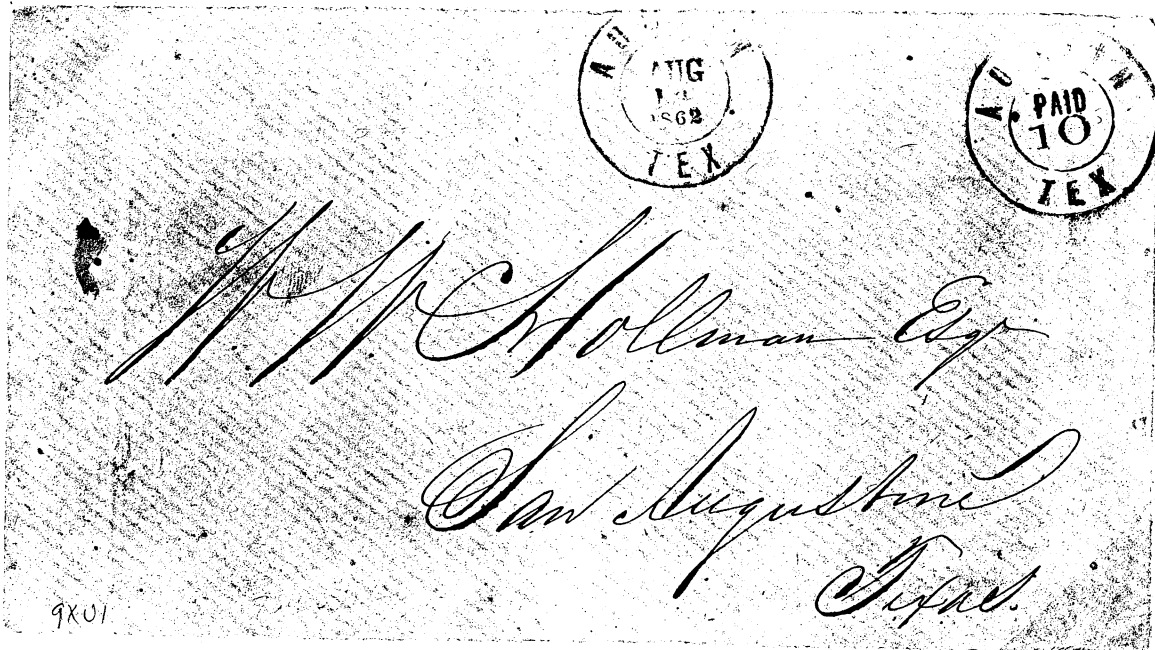 AUG
1862
TEX
PAID
10
TEX
W W Hollman Esqr
San Augustine
Texas.
9XU1